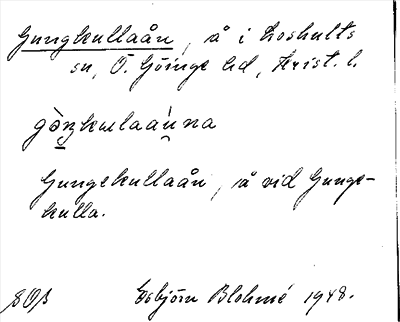 Gungkullaån, å i Loshults
sn, Ö. Göinge hd, Krist. l.
Gungekullaån, å vid Gunge-
kulla.
SOB Esbjörn Blohmé 1948.